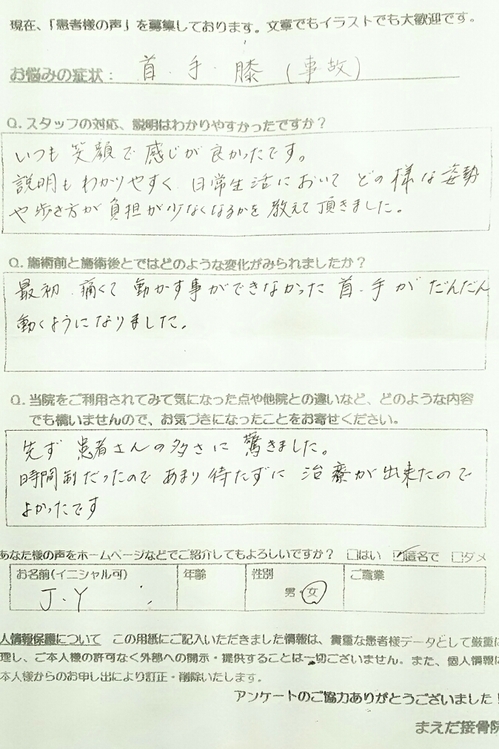 現在、「患者様の声」を募集しております。文章でもイラストでも大歓迎です。
お悩みの症状： 首・手・膝（事故）
Q. スタッフの対応、説明はわかりやすかったですか？
いつも笑顔で感じが良かったです。
説明もわかりやすく、日常生活においてどの様な姿勢
や歩き方が負担が少なくなるかを教えて頂きました。
Q. 施術前と施術後とではどのような変化がみられましたか？
最初、痛くて動かす事ができなかった首・手がだんだん
動くようになりました。
Q. 当院をご利用されてみて気になった点や他院との違いなど、どのような内容
でも構いませんので、お気づきになったことをお寄せください。
先ず患者さんの多さに驚きました。
時間制だったのであまり待たずに治療が出来たので
よかったです
あなた様の声をホームページなどでご紹介してもよろしいですか？ □はい ☑匿名で □ダメ
お名前(イニシャル可) 年齢 性別 ご職業
J・Y 男・女
人情報保護について この用紙にご記入いただきました情報は、貴重な患者様データとして厳重に
理し、ご本人様の許可なく外部への開示・提供することは一切ございません。また、個人情報は
本人様からのお申し出により訂正・削除いたします。
アンケートのご協力ありがとうございました！
まえだ接骨院